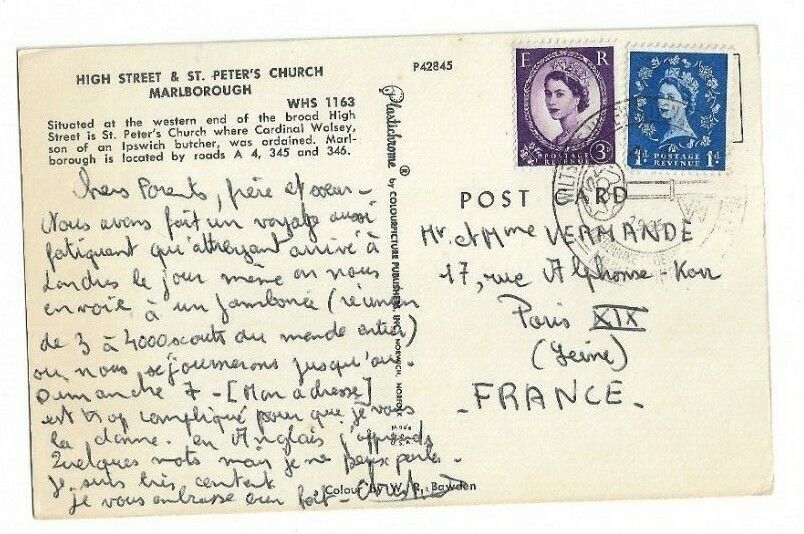 HIGH STREET & ST. PETER'S CHURCH
MARLBOROUGH
WHS 1163
Situated at the western end of the broad High
Street is St. Peter's Church where Cardinal Wolsey,
son of an Ipswich butcher, was ordained. Marl-
borough is located by roads A 4, 345 and 346.
Chers Parents, frère et soeur -
Nous avons fait un voyage aussi
fatiguant qu'attrayant arrivé à
Londres le jour même on nous
envoie à un Jamborée (réunion
de 3 à 4000 scouts du monde entier)
où nous séjournerons jusqu'au
Dimanche 7 - [Mon adresse]
est trop compliqué pour que je vous
la donne. en Anglais j'apprends
Quelques mots mais je ne peux parler
je suis très content
je vous embrasse bien fort -
Colour by W. R. Bawden
Plastichrome ® by COLOURPICTURE PUBLISHERS, INC. NORWICH, NORFOLK
MADE
U.S.A.
P42845
E R
POSTAGE
REVENUE
3D
POSTAGE
REVENUE
1D 1D
WILTS
POST CARD
Mr. et Mme VERMANDE
17, rue Alphonse-Karr
Paris XIX
(Seine)
- FRANCE -